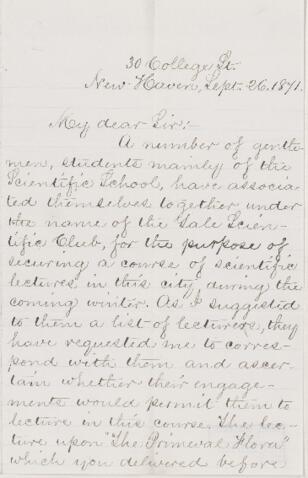 30 College St.
New Haven, Sept. 26. 1871.
My dear Sir:-
A number of gentle-
men, students mainly of the
Scientific School, have associa-
ted themselves together under
the name of the Yale Scien-
tific Club, for the purpose of
securing a course of scientific
lectures in this city, during the
coming winter. As I suggested
to them a list of lecturers, they
have requested me to corres-
pond with them and ascer-
tain whether their engage-
ments would permit them to
lecture in this course. The lec-
ture upon "The Primeval Flora"
which you delivered before